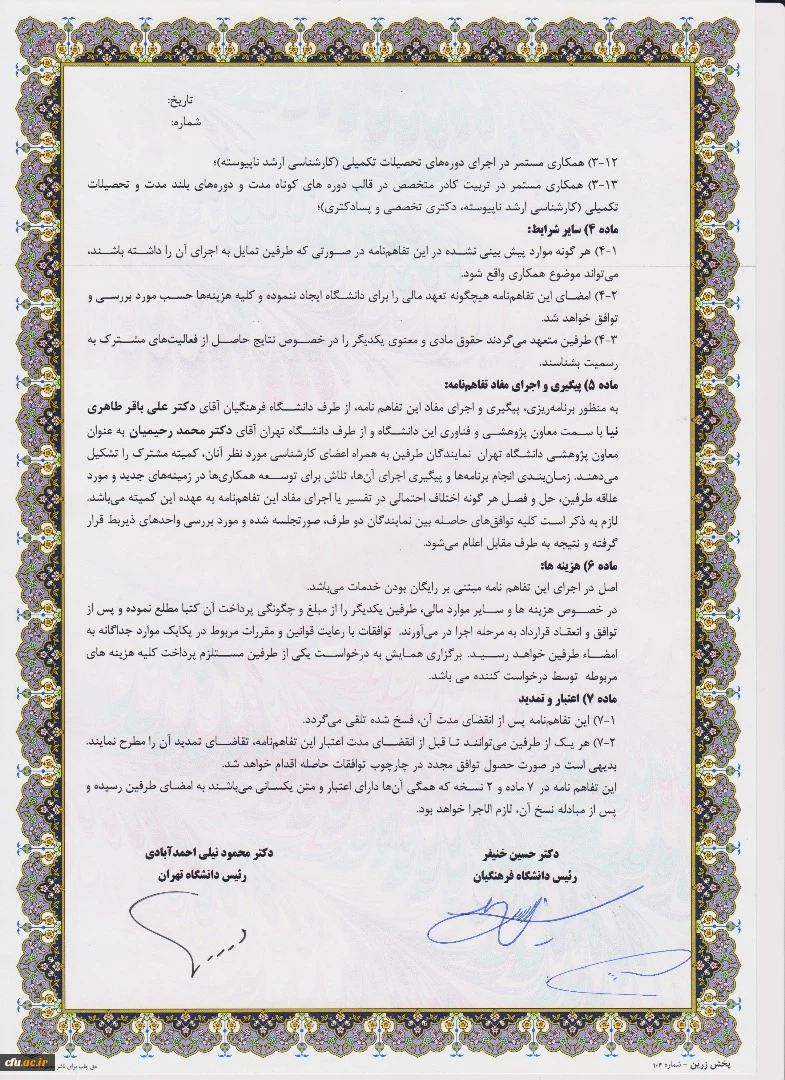 تاریخ:
شماره:
۳-۱۲) همکاری مستمر در اجرای دوره‌های تحصیلات تکمیلی (کارشناسی ارشد ناپیوسته)؛
۳-۱۳) همکاری مستمر در تربیت کادر متخصص در قالب دوره های کوتاه مدت و دوره‌های بلند مدت و تحصیلات
تکمیلی (کارشناسی ارشد ناپیوسته، دکتری تخصصی و پسادکتری)؛
ماده ۴) سایر شرایط:
۴-۱) هر گونه موارد پیش بینی نشده در این تفاهم‌نامه در صورتی که طرفین تمایل به اجرای آن را داشته باشند،
می‌تواند موضوع همکاری واقع شود.
۴-۲) امضای این تفاهم‌نامه هیچگونه تعهد مالی را برای دانشگاه ایجاد ننموده و کلیه هزینه‌ها حسب مورد بررسی و
توافق خواهد شد.
۴-۳) طرفین متعهد می‌گردند حقوق مادی و معنوی یکدیگر را در خصوص نتایج حاصل از فعالیت‌های مشترک به
رسمیت بشناسند.
ماده ۵) پیگیری و اجرای مفاد تفاهم‌نامه:
به منظور برنامه‌ریزی، پیگیری و اجرای مفاد این تفاهم نامه، از طرف دانشگاه فرهنگیان آقای دکتر علی باقر طاهری
نیا با سمت معاون پژوهشی و فناوری این دانشگاه و از طرف دانشگاه تهران آقای دکتر محمد رحیمیان به عنوان
معاون پژوهشی دانشگاه تهران نمایندگان طرفین به همراه اعضای کارشناسی مورد نظر آنان، کمیته مشترک را تشکیل
می‌دهند. زمان‌بندی انجام برنامه‌ها و پیگیری اجرای آن‌ها، تلاش برای توسعه همکاری‌ها در زمینه‌های جدید و مورد
علاقه طرفین، حل و فصل هر گونه اختلاف احتمالی در تفسیر یا اجرای مفاد این تفاهم‌نامه به عهده این کمیته می‌باشد.
لازم به ذکر است کلیه توافق‌های حاصله بین نمایندگان دو طرف، صورتجلسه شده و مورد بررسی واحدهای ذیربط قرار
گرفته و نتیجه به طرف مقابل اعلام می‌شود.
ماده ۶) هزینه ها:
اصل در اجرای این تفاهم نامه مبتنی بر رایگان بودن خدمات می‌باشد.
در خصوص هزینه ها و سایر موارد مالی، طرفین یکدیگر را از مبلغ و چگونگی پرداخت آن کتبا مطلع نموده و پس از
توافق و انعقاد قرارداد به مرحله اجرا در می‌آورند. توافقات با رعایت قوانین و مقررات مربوط در یکایک موارد جداگانه به
امضاء طرفین خواهد رسید. برگزاری همایش به درخواست یکی از طرفین مستلزم پرداخت کلیه هزینه های
مربوطه توسط درخواست کننده می باشد.
ماده ۷) اعتبار و تمدید
۷-۱) این تفاهم‌نامه پس از انقضای مدت آن، فسخ شده تلقی می‌گردد.
۷-۲) هر یک از طرفین می‌توانند تا قبل از انقضای مدت اعتبار این تفاهم‌نامه، تقاضای تمدید آن را مطرح نمایند.
بدیهی است در صورت حصول توافق مجدد در چارچوب توافقات حاصله اقدام خواهد شد.
این تفاهم نامه در ۷ ماده و ۲ نسخه که همگی آن‌ها دارای اعتبار و متن یکسانی می‌باشند به امضای طرفین رسیده و
پس از مبادله نسخ آن، لازم الاجرا خواهد بود.
دکتر حسین خنیفر
رئیس دانشگاه فرهنگیان
دکتر محمود نیلی احمدآبادی
رئیس دانشگاه تهران
پخش زرین - شماره ۱۰۴
حق چاپ برای ناشر
cfu.ac.ir